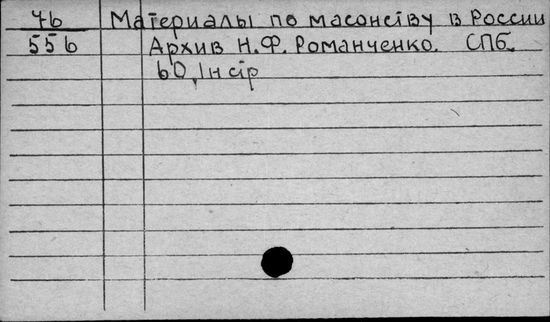 7б Материалы по масонству в России
556 Архив Н.Ф. Романченко. СПб.
60, Iн стр